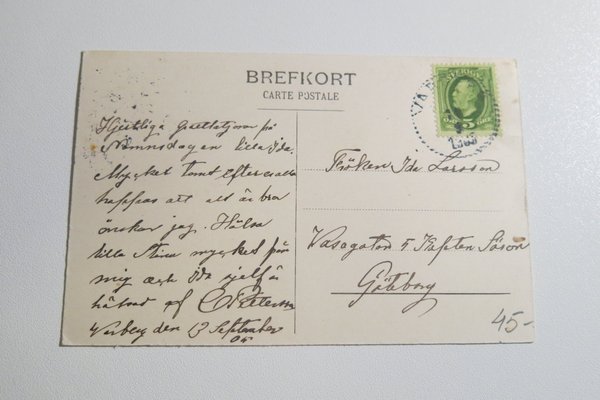 BREFKORT
CARTE POSTALE
SVERIGE
5
Hjertliga Grattationer på
Namnsdagen lilla Ida.
Mycket tomt efter
hoppas att alt är bra
önskar jag. Hälsa
lilla Stina mycket från
mig och Ida sjelf är
hälsad af C Petterson
Varberg den 13 September
05
Fröken Ida Larsson
Vasagatan 5
Göteborg
45-